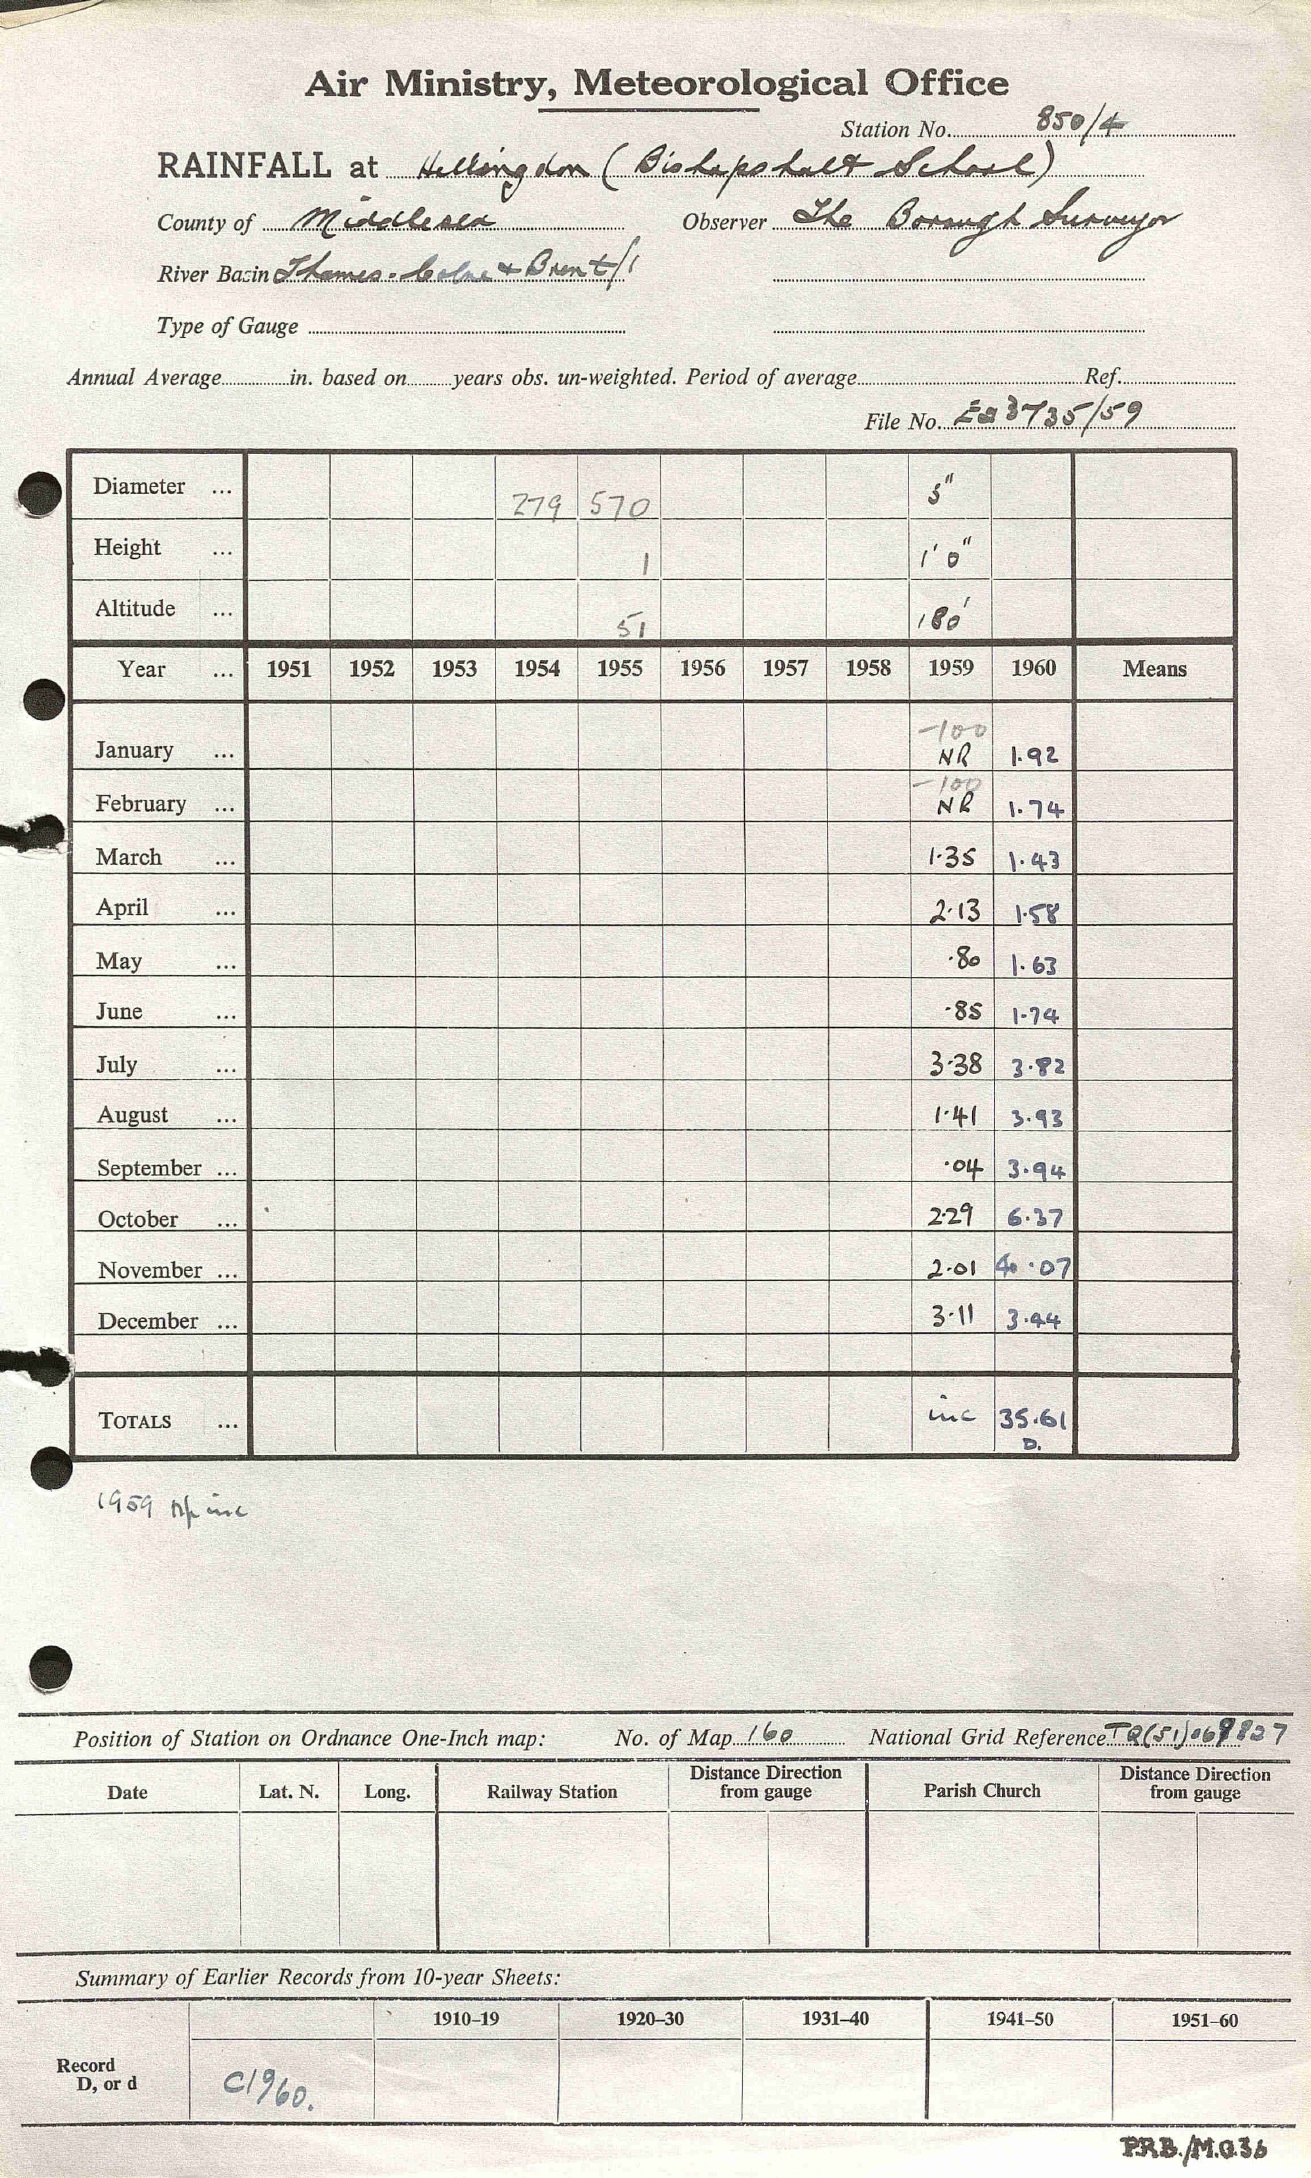 Air Ministry, Meteorological Office
Station No. 850/4
RAINFALL at Hillingdon (Bishopshalt School)
County of Middlesex Observer The Borough Surveyor
River Basin Thames - Colne & Brent/1
Type of Gauge
Annual Average in. based on years obs. un-weighted. Period of average Ref.
File No. 3735/59
Diameter ... 279 570 5"
Height ... 1 1' 0"
Altitude ... 51 180'
Year ... 1951 1952 1953 1954 1955 1956 1957 1958 1959 1960 Means
-100
January ... NR 1.92
-100
February ... NR 1.74
March ... 1.35 1.43
April ... 2.13 1.58
May ... .80 1.63
June ... .85 1.74
July ... 3.38 3.82
August ... 1.41 3.93
September ... .04 3.94
October ... 2.29 6.37
November ... 2.01 4.07
December ... 3.11 3.44
TOTALS ... inc 35.61
D.
1959 inc
Position of Station on Ordnance One-Inch map: No. of Map 160 National Grid Reference TQ(51)069827
Date Lat. N. Long. Railway Station Distance Direction from gauge Parish Church Distance Direction from gauge
Summary of Earlier Records from 10-year Sheets:
1910–19 1920–30 1931–40 1941–50 1951–60
Record
D, or d C1960.
P.R.B./M.O.36